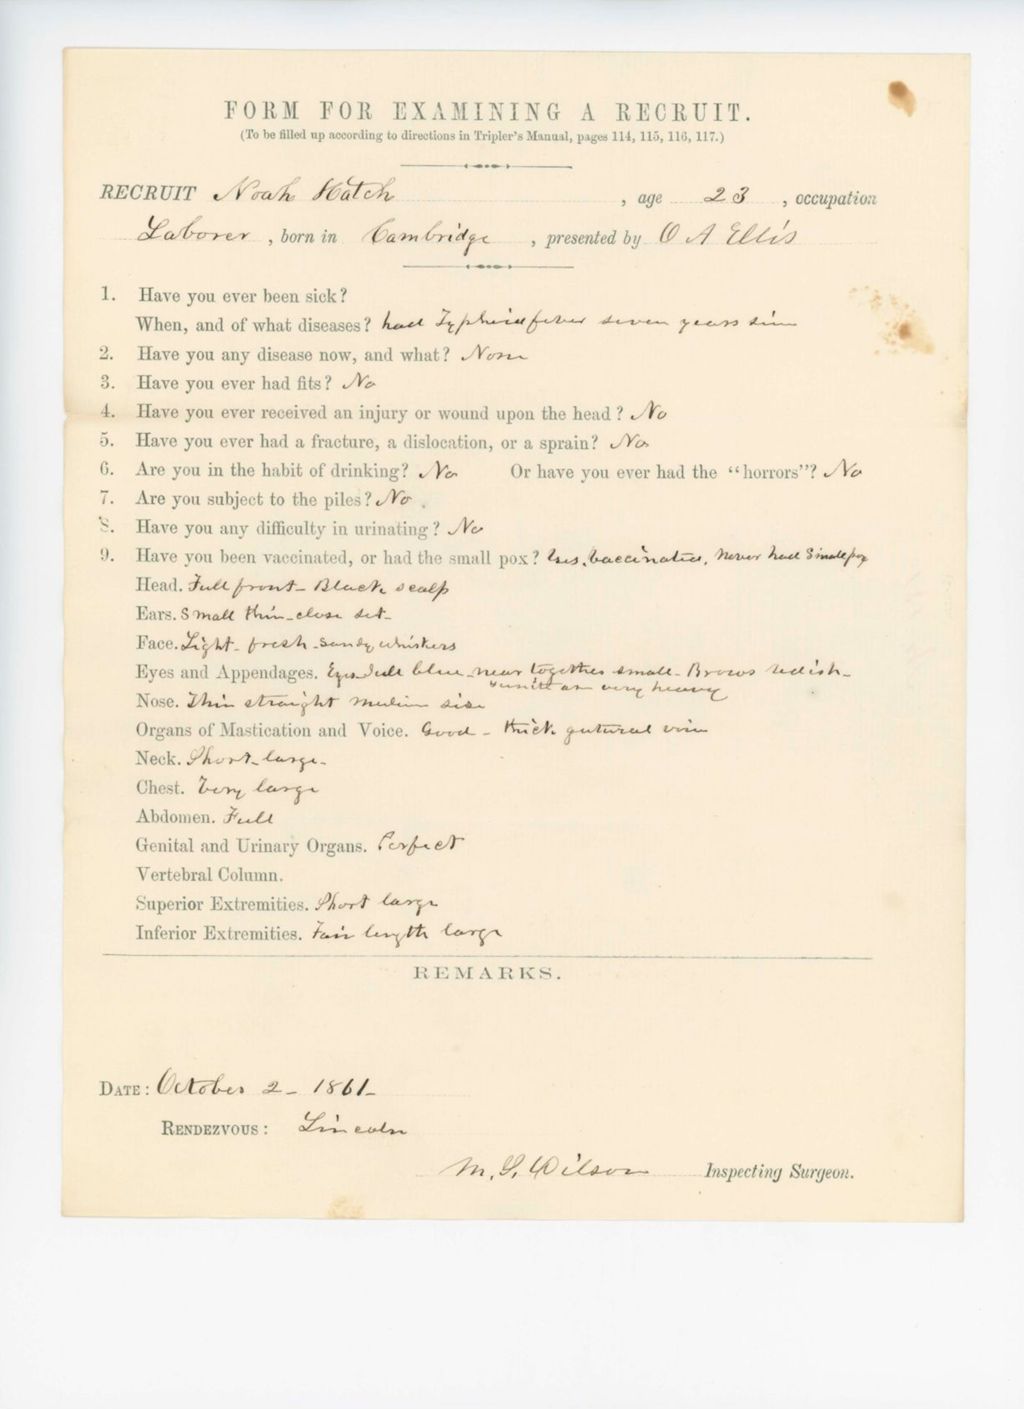 FORM FOR EXAMINING A RECRUIT.
(To be filled up according to directions in Tripler's Manual, pages 114, 115, 116, 117.)
RECRUIT Noah Hatch, age 23, occupation
Laborer, born in Cambridge, presented by O A Ellis
1. Have you ever been sick?
When, and of what diseases? had Typhoid fever seven years sinc
2. Have you any disease now, and what? None
3. Have you ever had fits? No
4. Have you ever received an injury or wound upon the head? No
5. Have you ever had a fracture, a dislocation, or a sprain? No
6. Are you in the habit of drinking? No Or have you ever had the "horrors"? No
7. Are you subject to the piles? No.
8. Have you any difficulty in urinating? No
9. Have you been vaccinated, or had the small pox? Yes, vaccinated, Never had Smallpox
Head. Full front - Black scalp
Ears. Small thin - close set -
Face. Light - fresh - Sandy whiskers
Eyes and Appendages. Eyes dull blue - near together small - Brows redish -
very heavy
Nose. Thin straight medium size
Organs of Mastication and Voice. Good - thick gutural voice
Neck. Short - large -
Chest. Very large
Abdomen. Full
Genital and Urinary Organs. Perfect
Vertebral Column.
Superior Extremities. Short large
Inferior Extremities. Fair length large
REMARKS.
DATE: October 2 - 1861 -
RENDEZVOUS: Lincoln
M. S. Wilson Inspecting Surgeon.